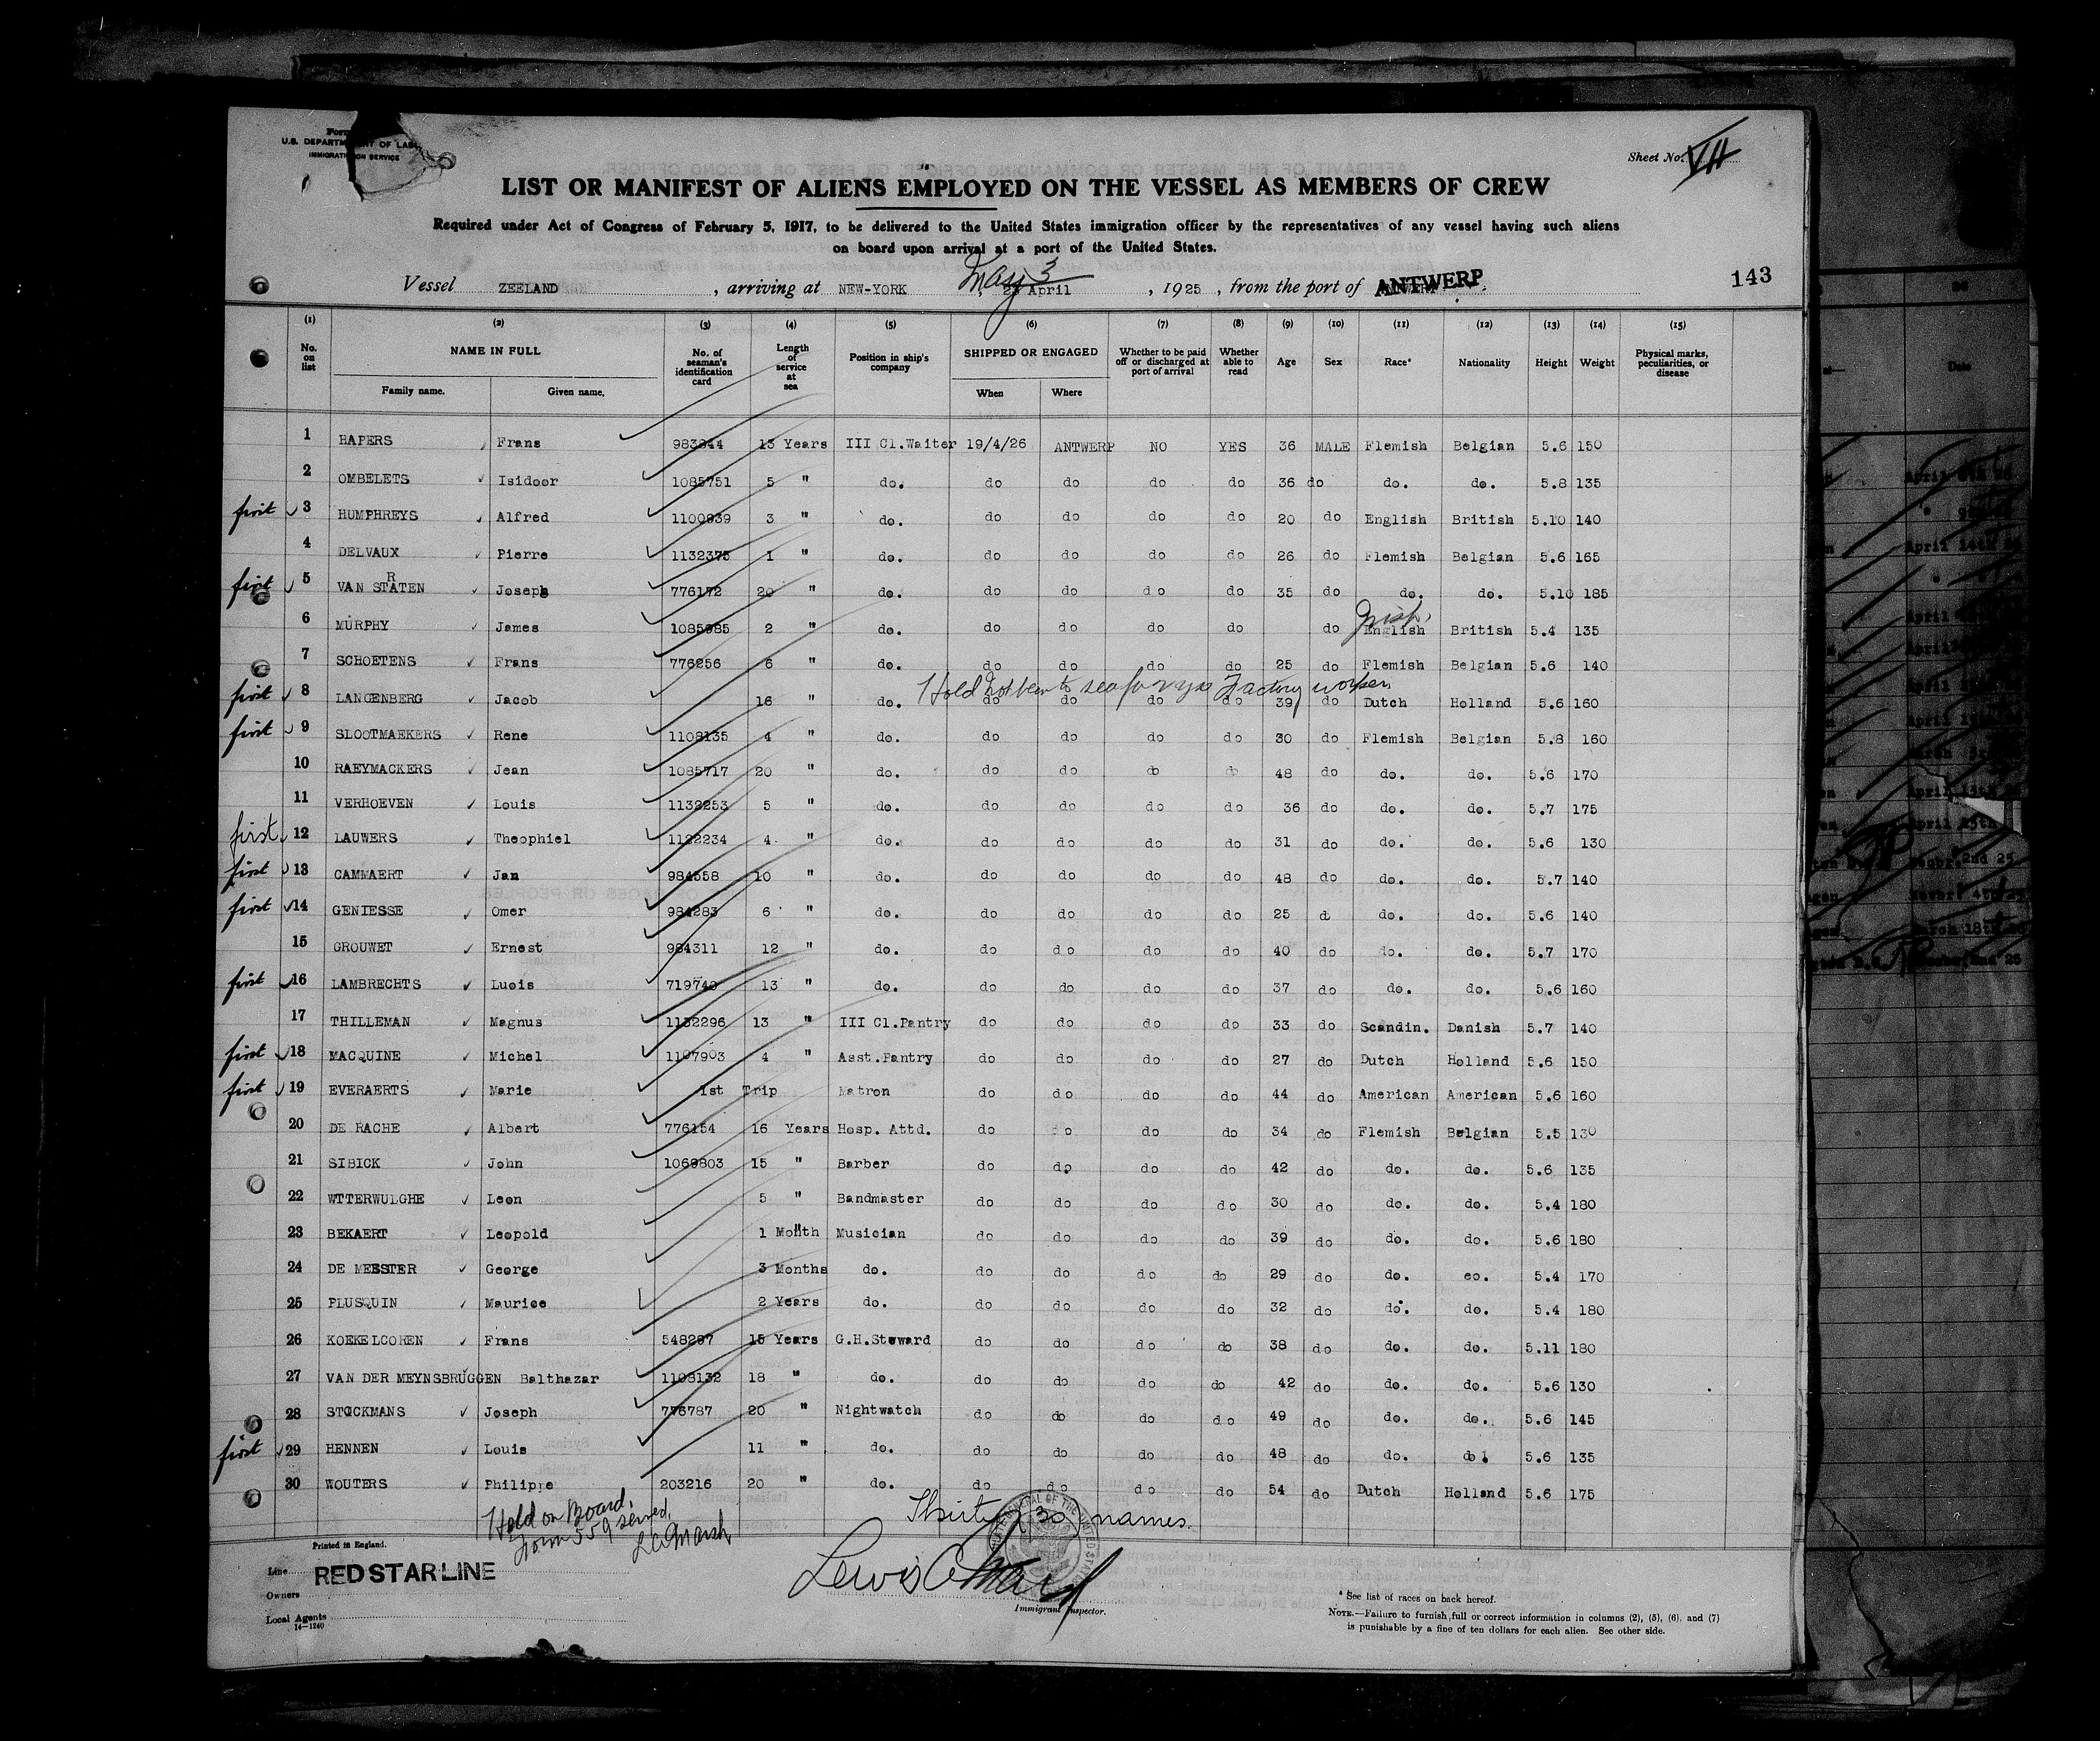 Form
U.S. DEPARTMENT OF LABOR
IMMIGRATION SERVICE
Sheet No. VII
LIST OR MANIFEST OF ALIENS EMPLOYED ON THE VESSEL AS MEMBERS OF CREW
Required under Act of Congress of February 5, 1917, to be delivered to the United States immigration officer by the representatives of any vessel having such aliens
on board upon arrival at a port of the United States.
May 3
Vessel ZEELAND , arriving at NEW-YORK , April , 1925 , from the port of ANTWERP
143
(1) (2) (3) (4) (5) (6) (7) (8) (9) (10) (11) (12) (13) (14) (15)
No. on list NAME IN FULL Family name. Given name. No. of seaman's identification card Length of service at sea Position in ship's company SHIPPED OR ENGAGED When Where Whether to be paid off or discharged at port of arrival Whether able to read Age Sex Race* Nationality Height Weight Physical marks, peculiarities, or disease
1 HAPERS Frans 983844 13 Years III Cl.Waiter 19/4/26 ANTWERP NO YES 36 MALE Flemish Belgian 5.6 150
2 OMBELETS Isidoor 1085751 5 " do. do do do do 36 do do. do. 5.8 135
first 3 HUMPHREYS Alfred 1100939 3 " do. do do do do 20 do English British 5.10 140
4 DELVAUX Pierre 1132375 1 " do. do do do do 26 do Flemish Belgian 5.6 165
first 5 VAN STRATEN Joseph 776172 20 " do. do do do do 35 do do. do. 5.10 185
6 MURPHY James 1085985 2 " do. do do do do do English Irish British 5.4 135
7 SCHOETENS Frans 776256 6 " do. do do do do 25 do Flemish Belgian 5.6 140
Hold Not been to sea for yrs Factory worker
first 8 LANGENBERG Jacob 16 " do. do do do do 39 do Dutch Holland 5.6 160
first 9 SLOOTMAEKERS Rene 1108135 4 " do. do do do do 30 do Flemish Belgian 5.8 160
10 RAEYMACKERS Jean 1085717 20 " do. do do do do 48 do do. do. 5.6 170
11 VERHOEVEN Louis 1132253 5 " do. do do do do 36 do do. do. 5.7 175
first 12 LAUWERS Theophiel 1122234 4 " do. do do do do 31 do do. do. 5.6 130
first 13 CAMMAERT Jan 984558 10 " do. do do do do 48 do do. do. 5.7 140
first 14 GENIESSE Omer 984283 6 " do. do do do do 25 d do. do. 5.6 140
15 GROUWET Ernest 984311 12 " do. do do do do 40 do do. do. 5.7 170
first 16 LAMBRECHTS Luois 719740 13 " do. do do do do 37 do do. do. 5.6 160
17 THILLEMAN Magnus 1132296 13 " III Cl.Pantry do do do do 33 do Scandin. Danish 5.7 140
first 18 MACQUINE Michel 1107903 4 " Asst.Pantry do do do do 27 do Dutch Holland 5.6 150
first 19 EVERAERTS Marie 1st Trip Matron do do do do 44 do American American 5.6 160
20 DE RACHE Albert 776154 16 Years Hosp. Attd. do do do do 34 do Flemish Belgian 5.5 130
21 SIBICK John 1069803 15 " Barber do do do do 42 do do. do. 5.6 135
22 WTTERWULGHE Leon 5 " Bandmaster do do do do 30 do do. do. 5.4 180
23 BEKAERT Leopold 1 Month " Musician do do do do 39 do do. do. 5.6 180
24 DE MEESTER George 3 Months do. do do do do 29 do do. eo. 5.4 170
25 PLUSQUIN Maurice 2 Years do. do do do do 32 do do. do. 5.4 180
26 KOEKELCOREN Frans 548297 15 Years G.H.Steward do do do do 38 do do. do. 5.11 180
27 VAN DER MEYNSBRUGGEN Balthazar 1108132 18 " do. do do do do 42 do do. do. 5.6 130
28 STOCKMANS Joseph 776787 20 " Nightwatch do do do do 49 do do. do. 5.6 145
first 29 HENNEN Louis 11 " do. do do do do 48 do do. do. 5.6 135
30 WOUTERS Philippe 203216 20 " do. do do do do 54 do Dutch Holland 5.6 175
Hold on Board.
Form 559 served.
L.C. Marsh
Thirty 30 names.
Printed in England.
Line RED STAR LINE
Owners
Local Agents
14-1240
Immigrant Inspector.
* See list of races on back hereof.
NOTE.—Failure to furnish full or correct information in columns (2), (5), (6), and (7)
is punishable by a fine of ten dollars for each alien. See other side.
Date